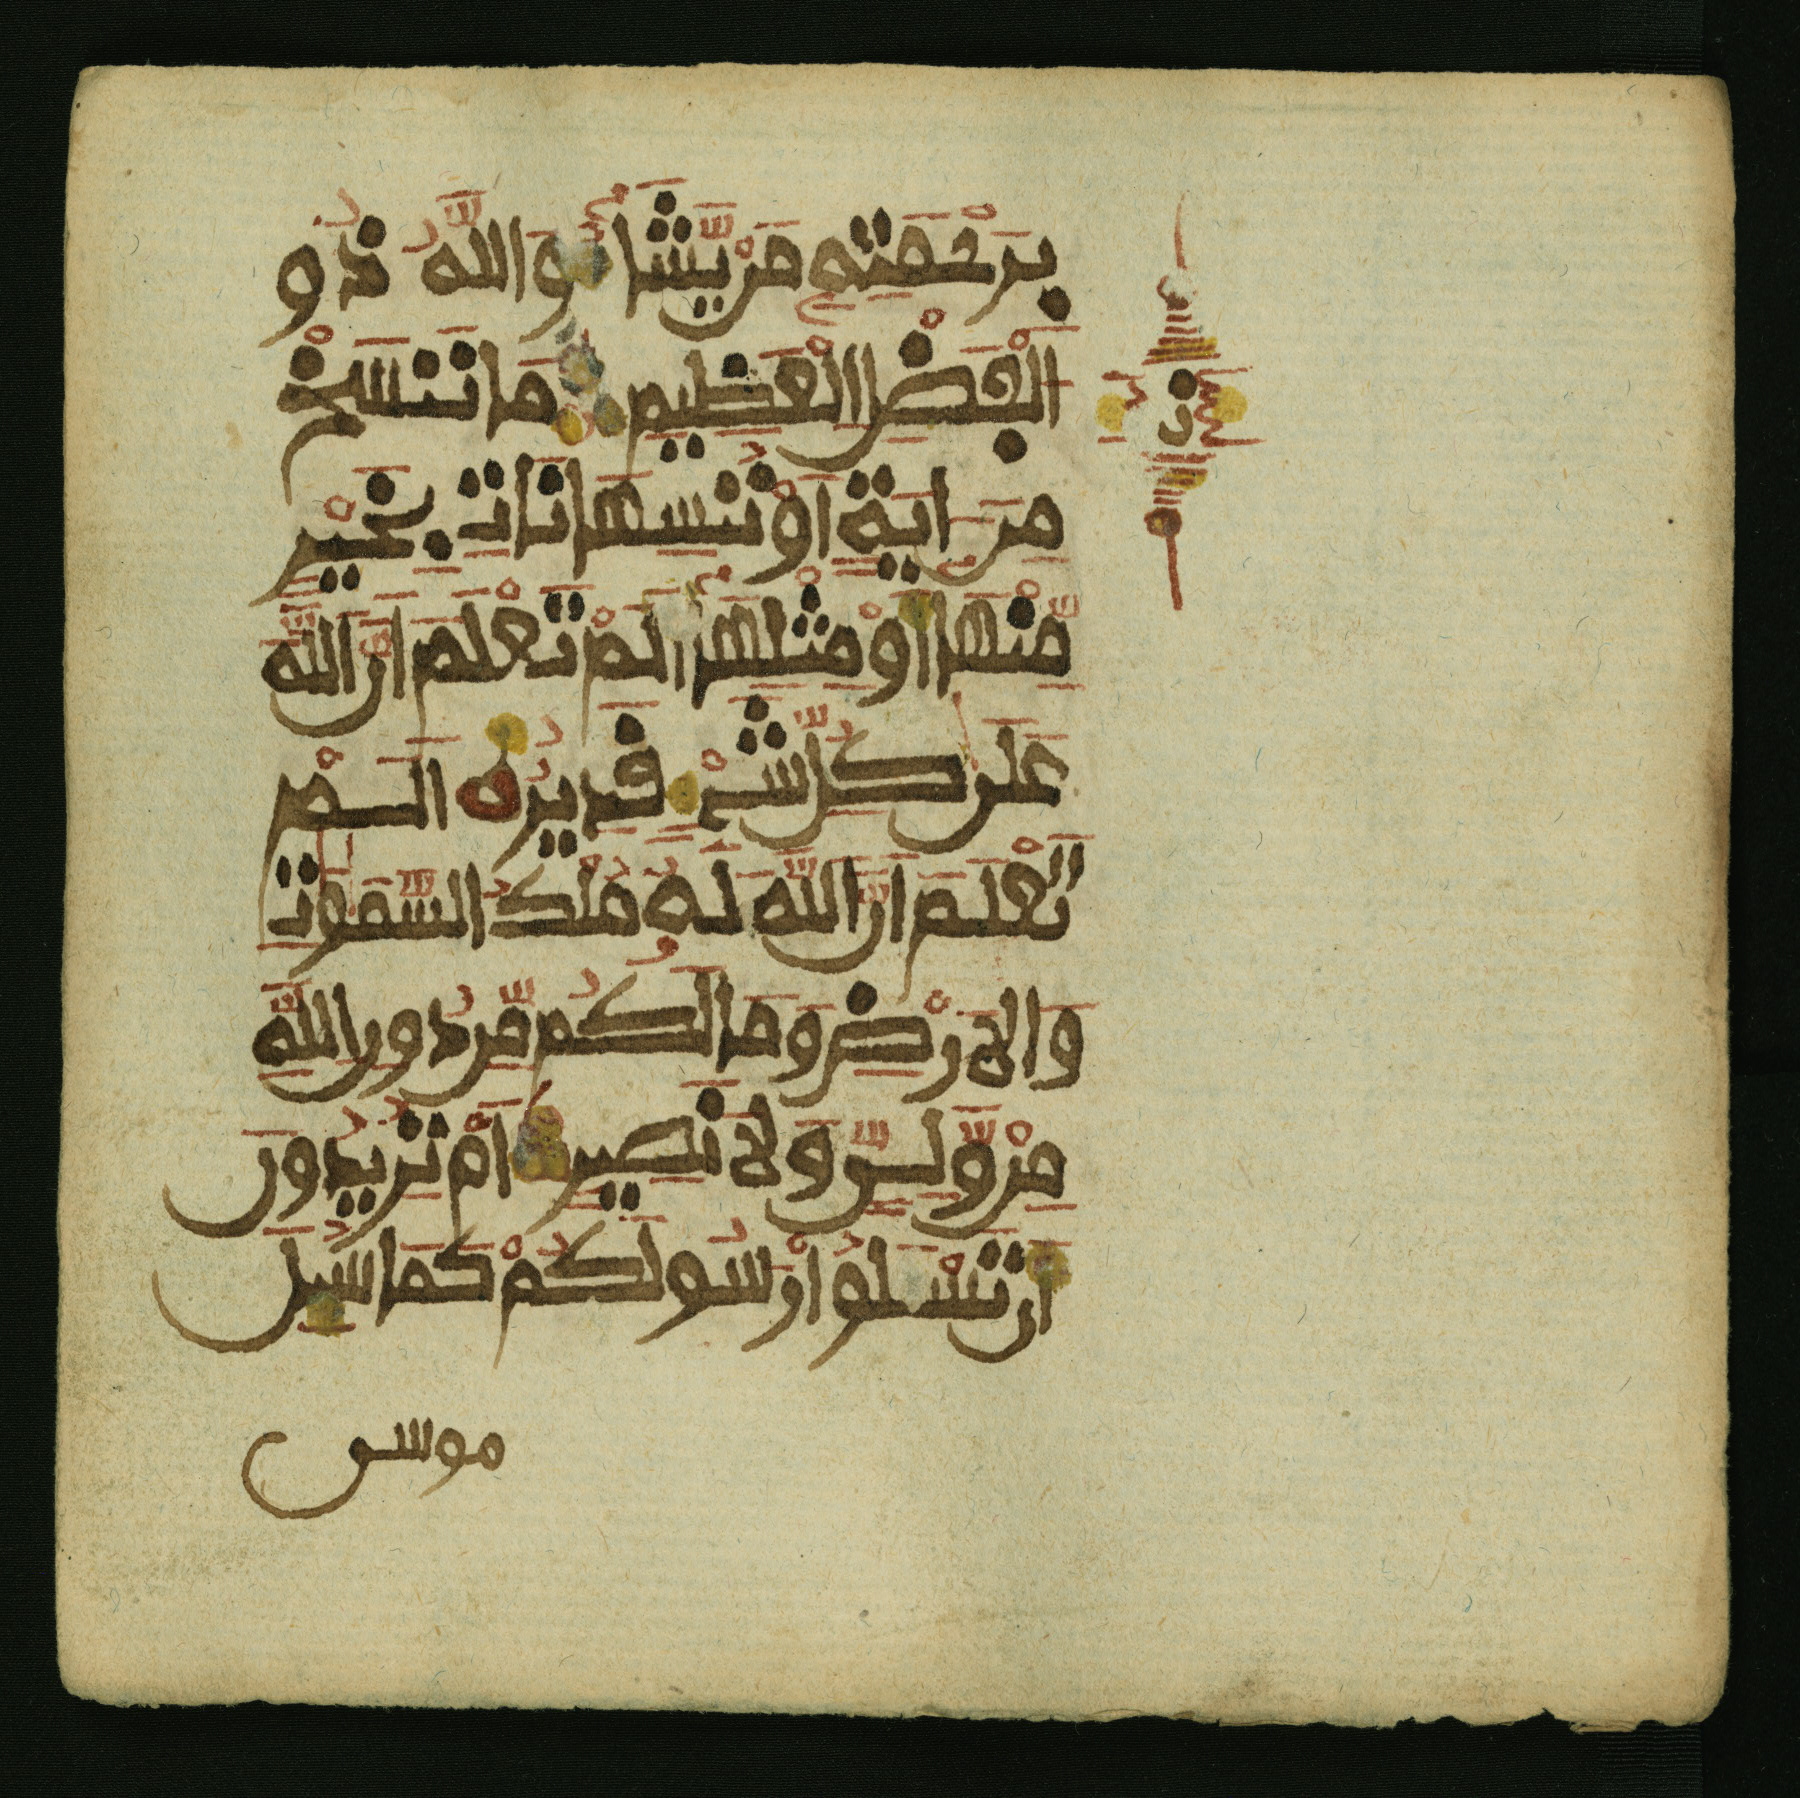 بِرَحْمَتِهِ مَنْ يَّشَاءُ وَاللَّهُ ذُو
الْفَضْلِ الْعَظِيمِ مَا نَنسَخْ
مِنَ ايَةٍ اَوْ نُنسِهَا نَاتِ بِخَيْرٍ
مِّنْهَا أَوْ مِثْلِهَا أَلَمْ تَعْلَمَ انَّ اللَّهَ
عَلَى كُلِّ شَےْءٍ قَدِيرٌ اَلَمْ
تَعْلَمَ انَّ اللَّهَ لَهُ مُلْكُ السَّمَٰوَٰتِ
وَالَارْضِ وَمَا لَكُم مِّن دُونِ اللَّهِ
مِنْ وَّلِيٍّ وَلَا نَصِيرٍ اَمْ تُرِيدُونَ
أَن تَسْـَٔلُوا رَسُولَكُمْ كَمَا سُئِلَ
موسى
ن